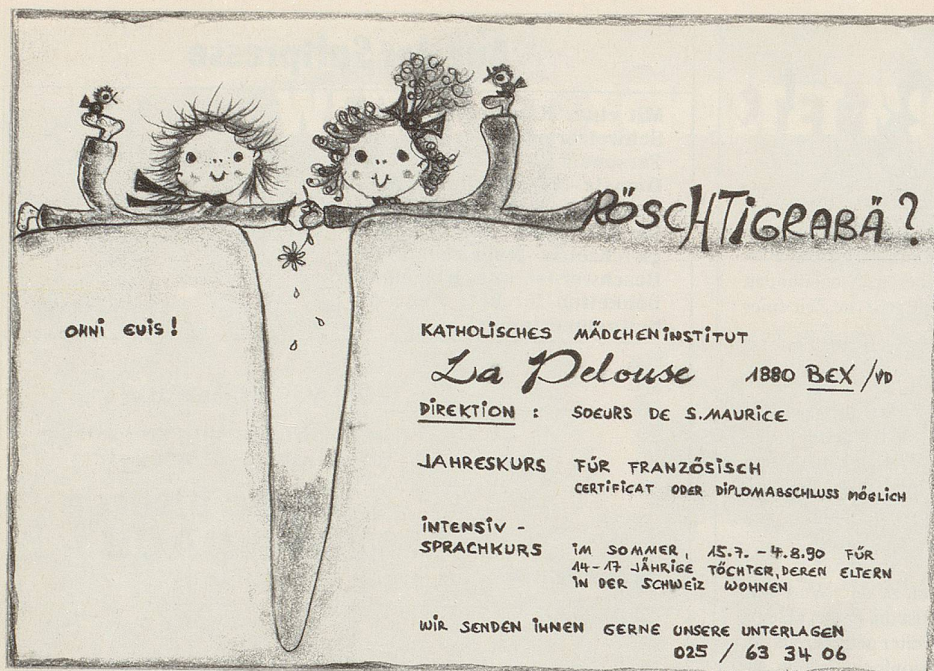 RÖSCHTiGRABÄ?
OHNi EUiS!
KATHOLiSCHES MÄDCHENiNSTiTUT
La Pelouse 1880 BEX /VD
DiREKTiON : SOEURS DE S.MAURiCE
JAHRESKURS FÜR FRANZÖSiSCH
CERTiFiCAT ODER DiPLOMABSCHLUSS MÖGLiCH
iNTENSiV -
SPRACHKURS iM SOMMER, 15.7. - 4.8.90 FÜR
14-17 JÄHRiGE TÖCHTER, DEREN ELTERN
iN DER SCHWEiZ WOHNEN
WiR SENDEN iHNEN GERNE UNSERE UNTERLAGEN
025 / 63 34 06